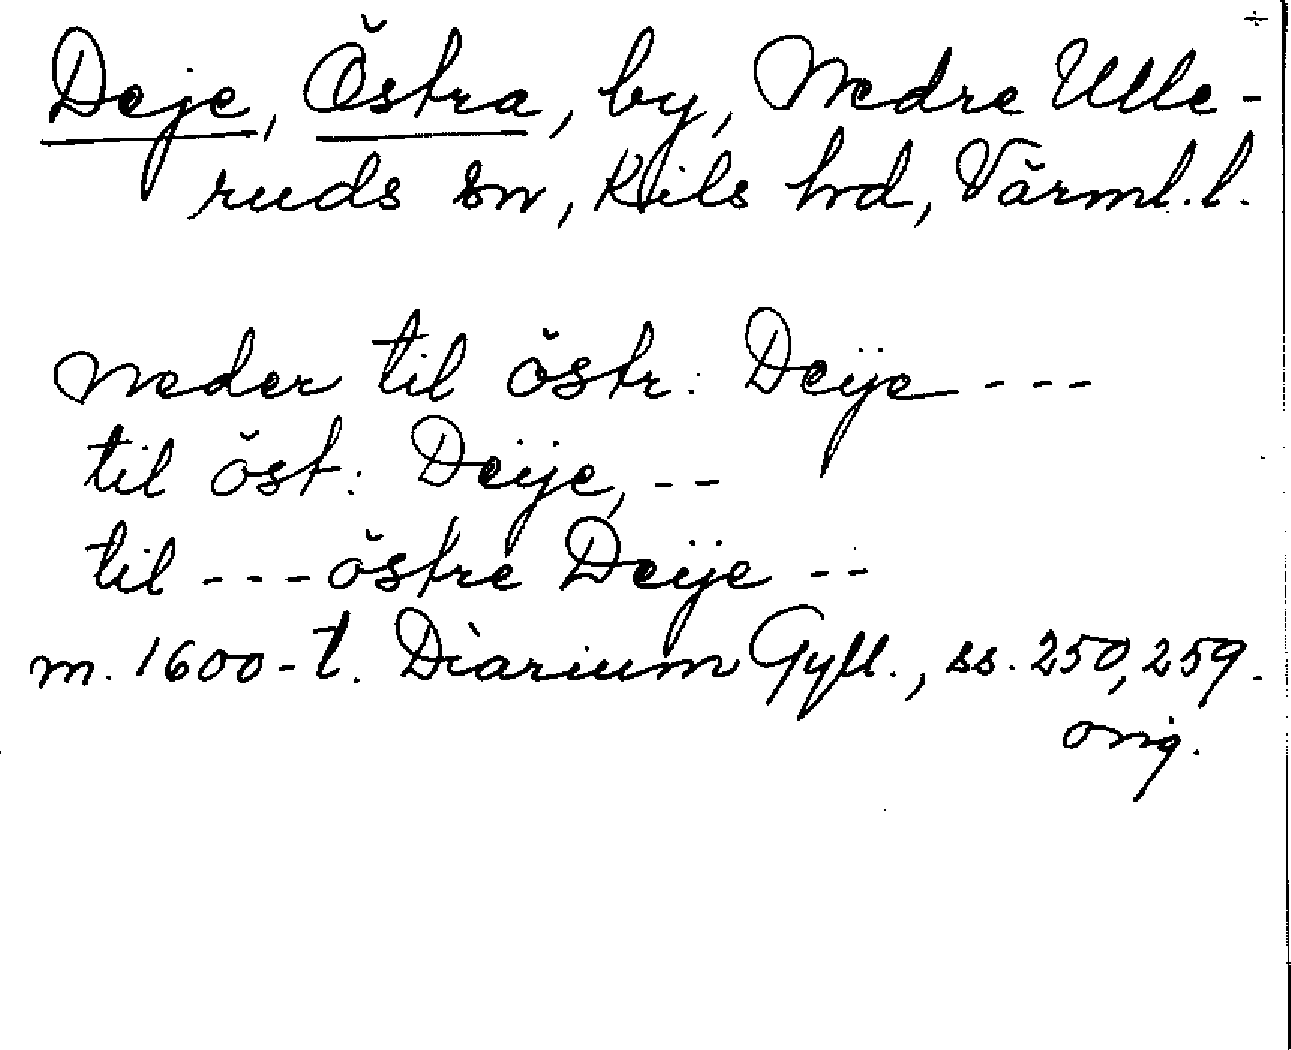 ÷
Deje, Östra, by, Nedre Ulle-
ruds sn, Kils hd, Värml. l.
neder til östr: Deije - - -
til öst: Deije, - -
til - - - östre Deije - -
m. 1600-t. Diarium Gyll., ss. 250, 259.
orig.